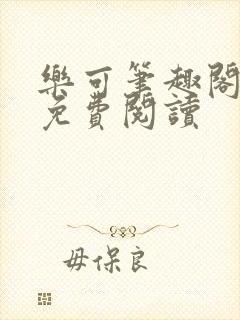 樂可筆趣閣
免費閱讀
毋保良